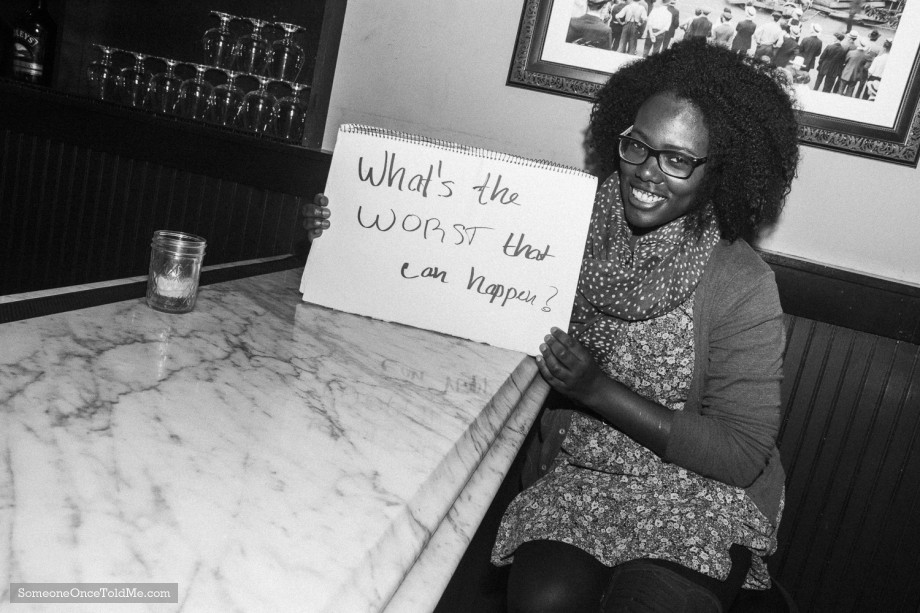 What's the
WORST that
can happen?
SomeoneOnceToldMe.com